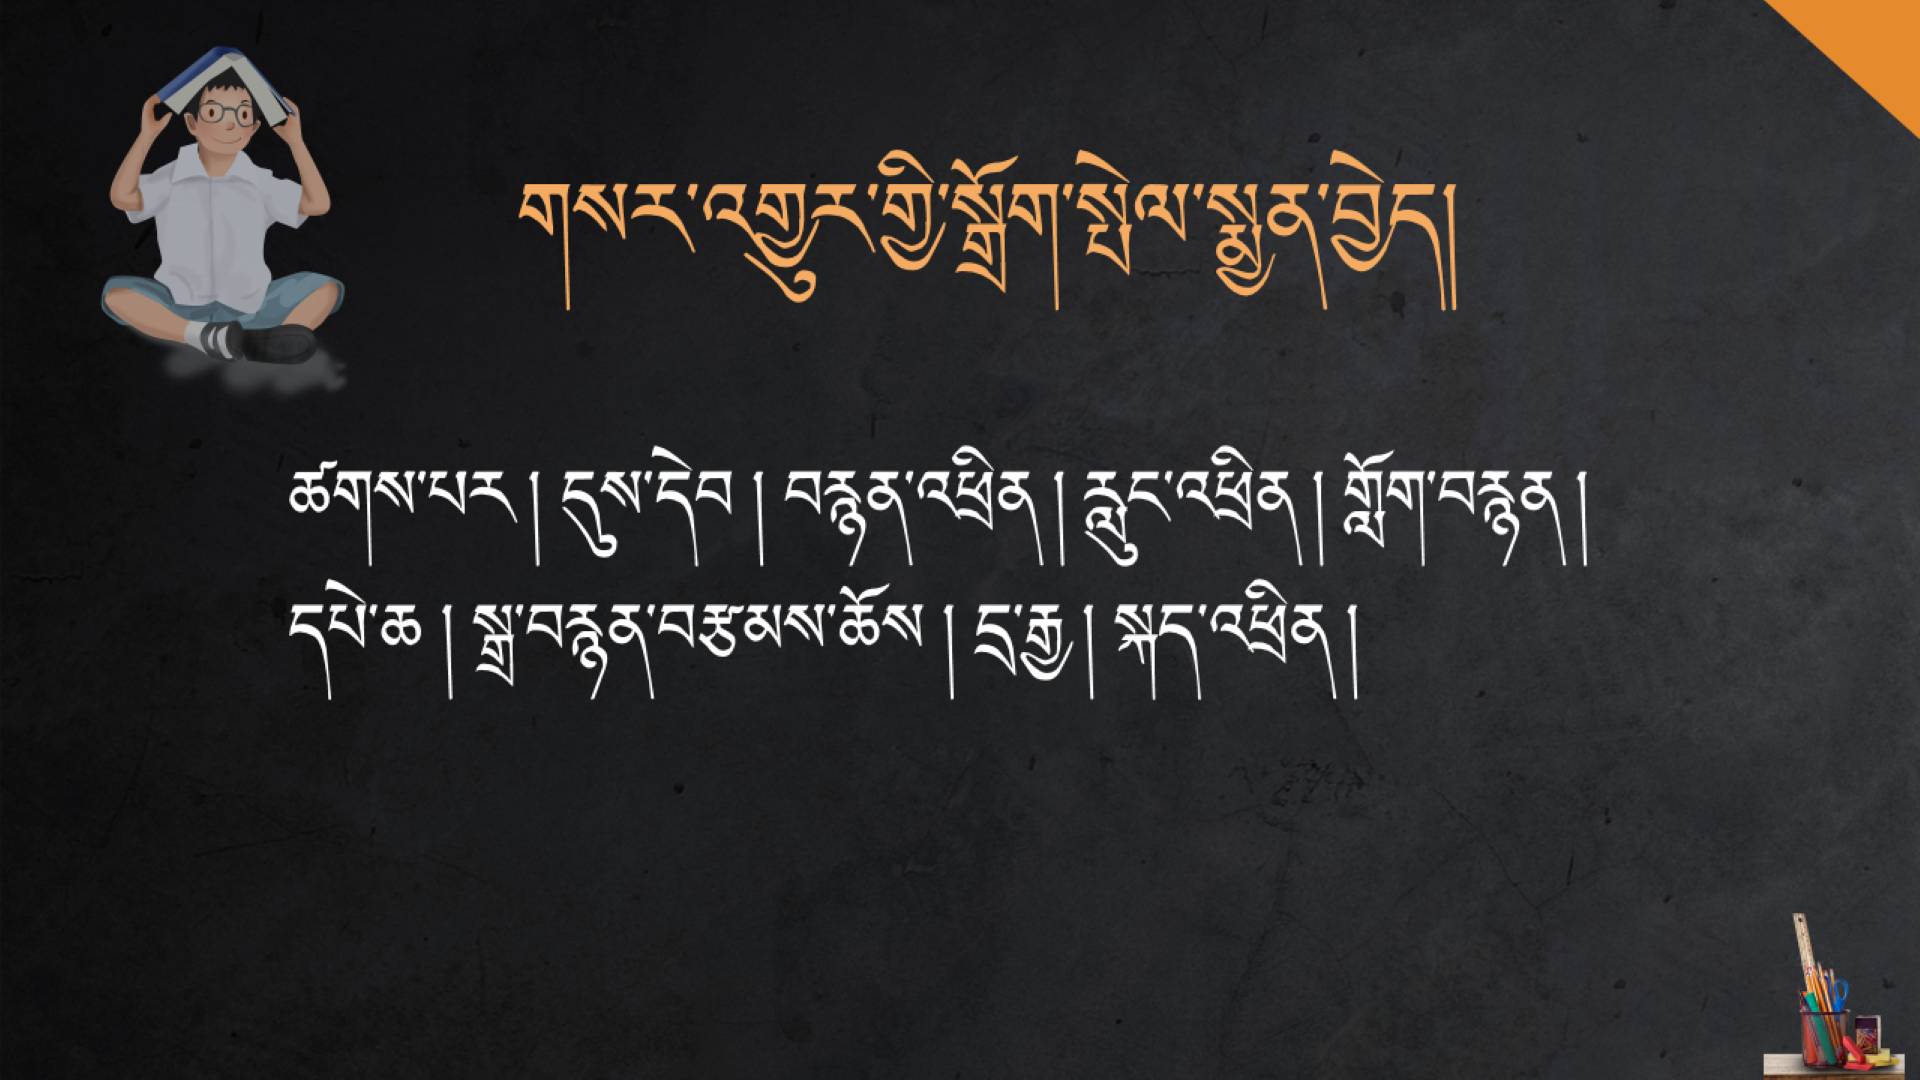 གསར་འགྱུར་གྱི་སྒྲོག་སྤེལ་སྨྱན་བྱེད།
ཚགས་པར། དུས་དེབ། བརྙན་འཕྲིན། རླུང་འཕྲིན། གློག་བརྙན།
དཔེ་ཆ། སྒྲ་བརྙན་བརྩམས་ཆོས། དྲ་རྒྱ། སྐད་འཕྲིན།